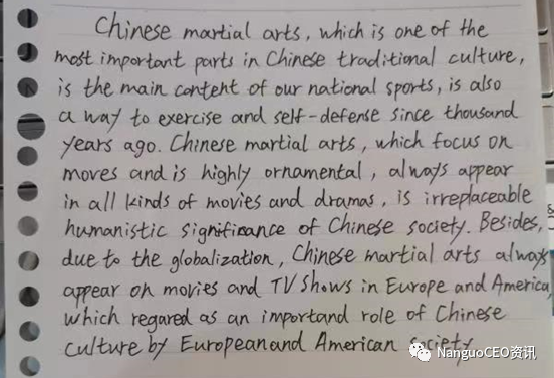 Chinese martial arts, which is one of the
most important parts in Chinese traditional culture,
is the main content of our national sports, is also
a way to exercise and self-defense since thousand
years ago. Chinese martial arts, which focus on
moves and is highly ornamental, always appear
in all kinds of movies and dramas, is irreplaceable
humanistic significance of Chinese society. Besides,
due to the globalization, Chinese martial arts always
appear on movies and TV shows in Europe and America,
which regared as an importand role of Chinese
culture by European and American society
NanguoCEO资讯